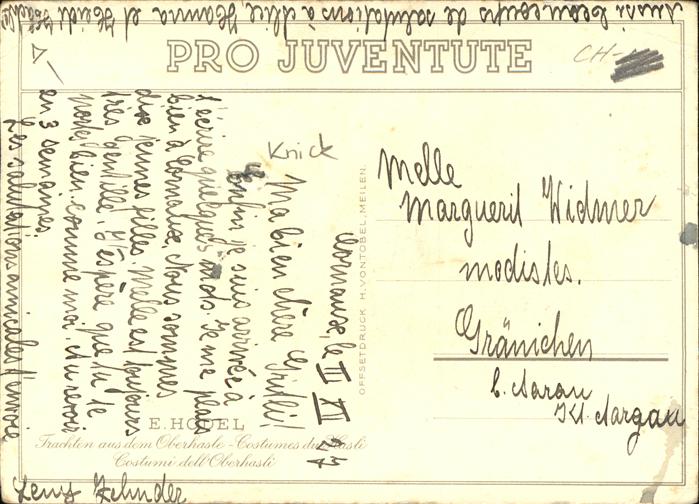 PRO JUVENTUTE
CH-
Knick
Cornaux, le II XI
Ma bien chère Gritli!
Enfin je suis arrivée à
t'écrire quelques mots. Je me plais
bien à Cornaux. Nous sommes
dix jeunes filles. Melle est toujours
très gentille. J'espère que tu te
portes bien comme moi. Au revoir
en 3 semaines.
Les salutations amicales t'envoie
Zehnder
Aussi beaucoups de salutations à Alice, Hanna et Heidi
OFFSETDRUCK H. VONTOBEL, MEILEN.
Melle
Marguerit Widmer
modistes.
Gränichen
b. Aarau
Kt. Aargau
E. HODEL
Trachten aus dem Oberhasle - Costumes du Hasli
Costumi dell'Oberhasli